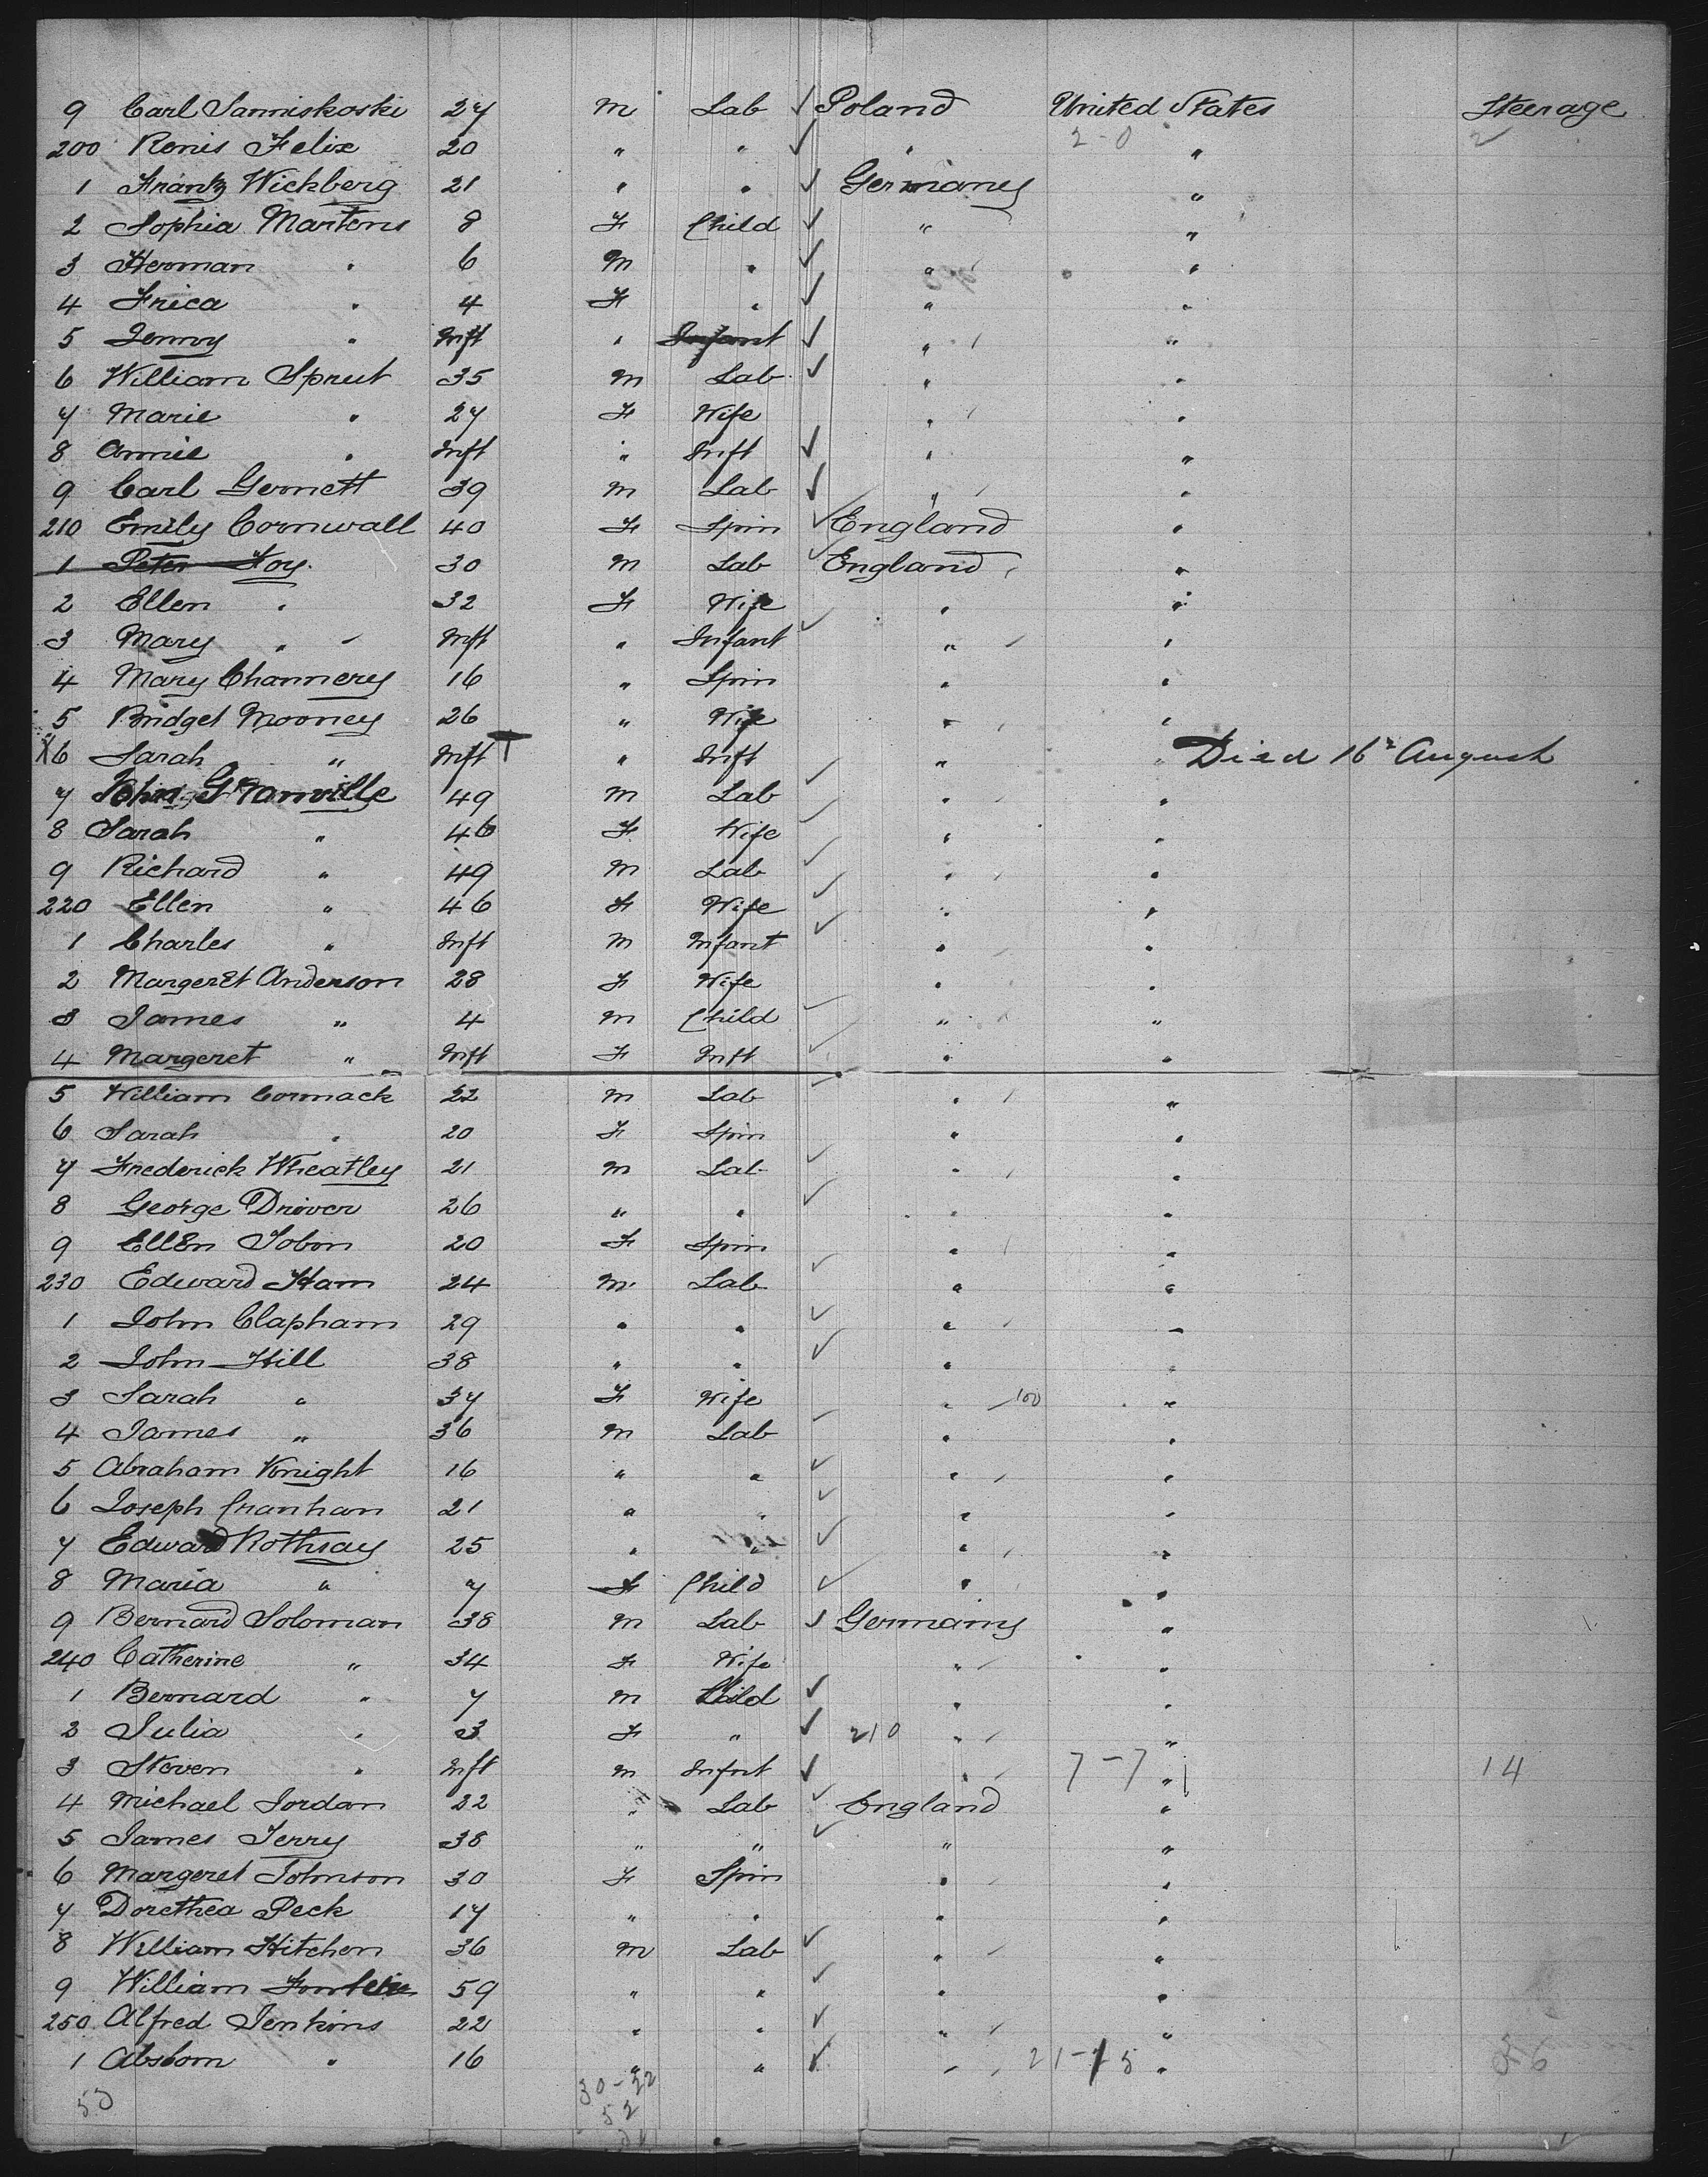 9 Carl Sanniskoski 27 M Lab ✓ Poland United States Steerage
200 Renis Felix 20 " " ✓ " 2-0 " 2
1 Frantz Wickberg 21 " " ✓ Germany "
2 Sophia Martens 8 F Child ✓ " "
3 Herman " 6 M " ✓ " "
4 Frica " 4 F " ✓ " "
5 Jenny " Inft " Infant ✓ " "
6 William Sprut 35 M Lab ✓ " "
7 Marie " 27 F Wife " "
8 Annie " Inft " Inft ✓ " "
9 Carl Gernett 39 M Lab ✓ " "
210 Emily Cornwall 40 F Spin ✓ England "
1 Peter Foy 30 M Lab ✓ England "
2 Ellen " 32 F Wife " "
3 Mary " Inft " Infant ✓ " "
4 Mary Channery 16 " Spin " "
5 Bridget Mooney 26 " Wife " "
X6 Sarah " Inft T " Inft " " Died 16th August
7 John Granville 49 M Lab ✓ " "
8 Sarah " 46 F Wife " "
9 Richard " 49 M Lab ✓ " "
220 Ellen " 46 F Wife ✓ " "
1 Charles " Inft M Infant ✓ " "
2 Margeret Anderson 28 F Wife " "
3 James " 4 M Child ✓ " "
4 Margeret " Inft F Inft ✓ " "
5 William Cormack 22 M Lab ✓ " "
6 Sarah " 20 F Spin " "
7 Frederick Wheatley 21 M Lab ✓ " "
8 George Driver 26 " " ✓ " "
9 Ellen Tobin 20 F Spin " "
230 Edward Ham 24 M Lab ✓ " "
1 John Clapham 29 " " ✓ " "
2 John Hill 38 " " ✓ " "
3 Sarah " 37 F Wife " 100 "
4 James " 36 M Lab ✓ " "
5 Abraham Knight 16 " " ✓ " "
6 Joseph Cranham 21 " " ✓ " "
7 Edward Rothsay 25 " " ✓ " "
8 Maria " 7 F Child ✓ " "
9 Bernard Soloman 38 M Lab ✓ Germany "
240 Catherine " 34 F Wife " "
1 Bernard " 7 M Child ✓ " "
2 Julia " 3 F " ✓ 210 " "
3 Steven " Inft M Infnt ✓ " 7-7 " 14
4 Michael Jordan 22 " Lab ✓ England "
5 James Terry 38 " " ✓ " "
6 Margeret Johnson 30 F Spin " "
7 Dorethea Peck 17 " " " "
8 William Hitchen 36 M Lab ✓ " "
9 William 59 " " ✓ " "
250 Alfred Jenkins 22 " " ✓ " "
1 Absolom " 16 " " ✓ " 21-15 " 36
50 30-22
52